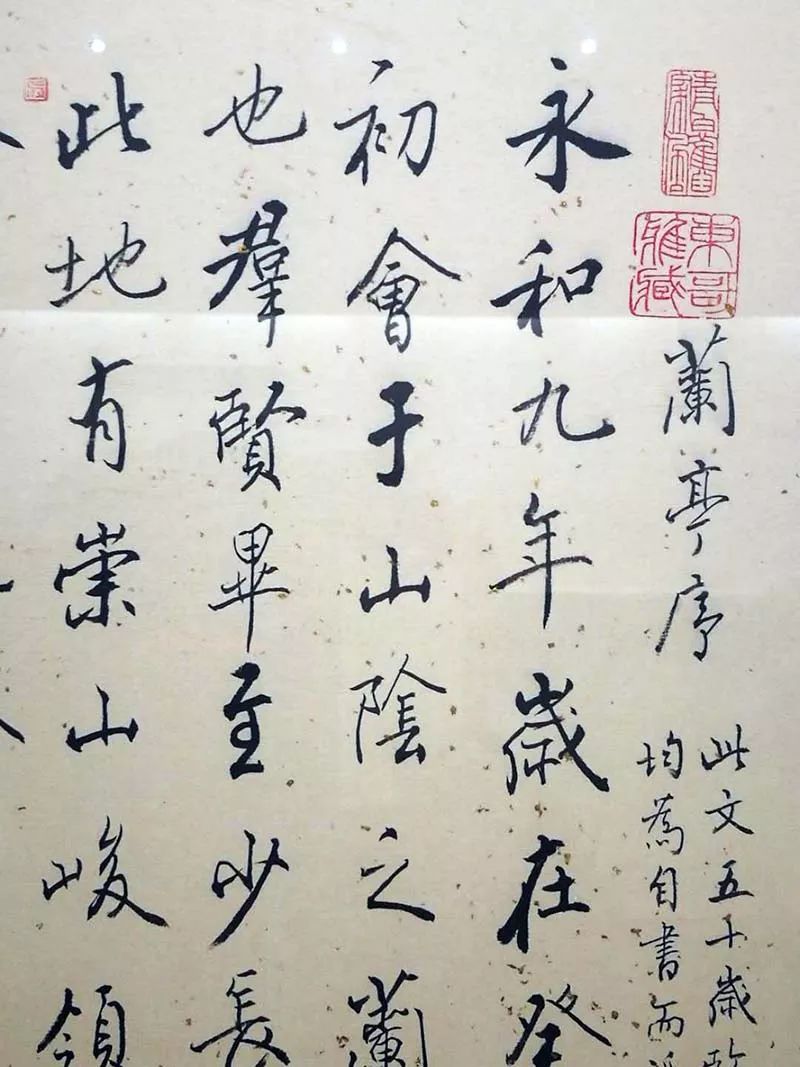 東哥雅藏
蘭亭序
此文五十歲
均為自書而
永和九年歲在癸
初會于山陰之蘭
也羣賢畢至少長
此地有崇山峻領